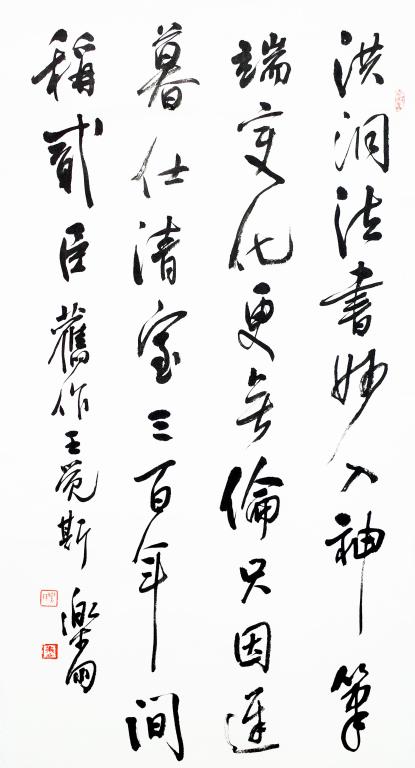 洪洞法書妙入神筆
端变化更無倫只因遲
暮仕清室三百年间
稱貳臣舊作王觉斯